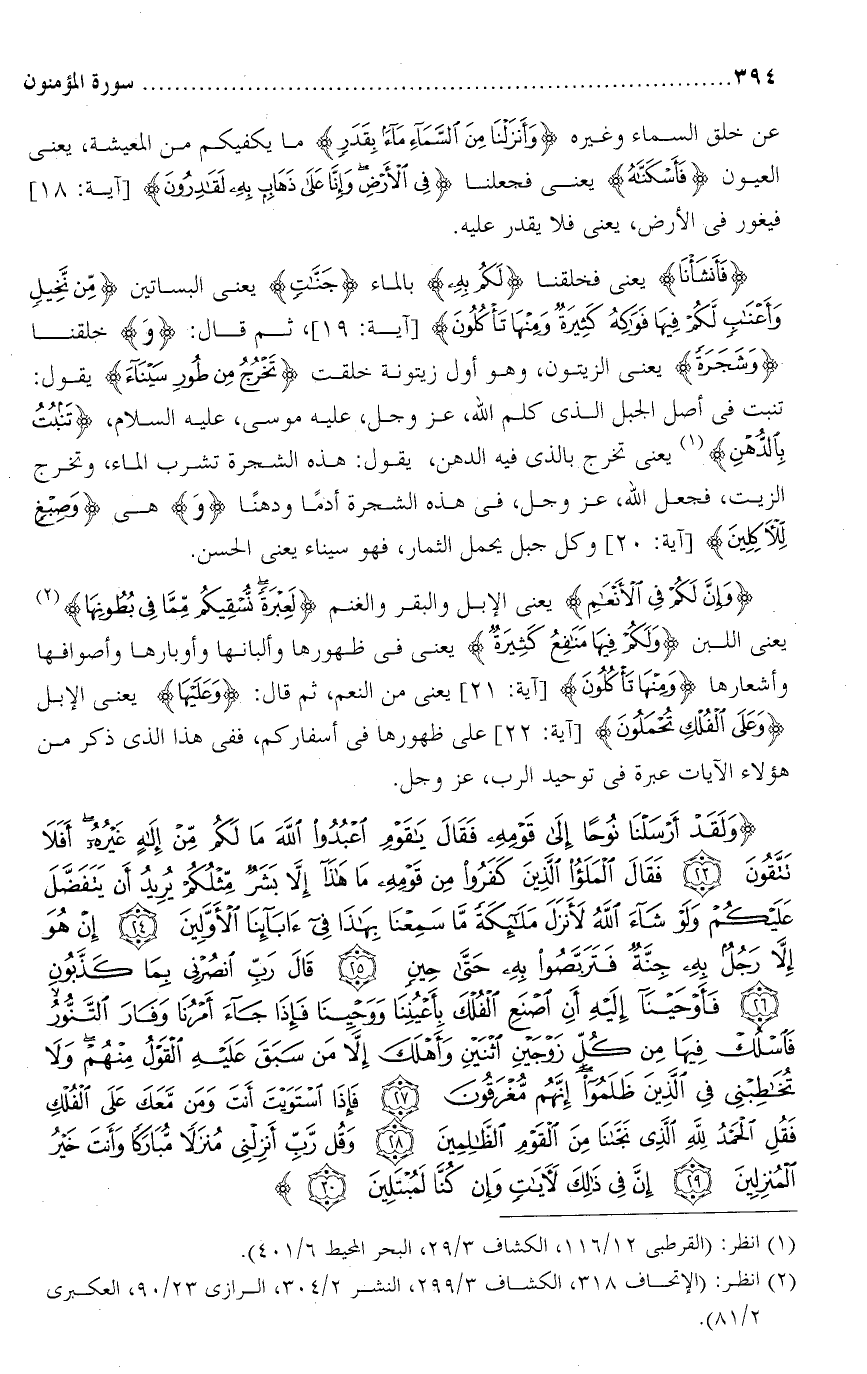 ٣٩٤ ........................................................................ سورة المؤمنون
عن خلق السماء وغيره ﴿وَأَنزَلْنَا مِنَ ٱلسَّمَآءِ مَآءًۢ بِقَدَرٍ﴾ ما يكفيكم من المعيشة، يعنى
العيون ﴿فَأَسْكَنَّٰهُ﴾ يعنـى فجعلنـا ﴿فِى ٱلْأَرْضِ ۖ وَإِنَّا عَلَىٰ ذَهَابٍۭ بِهِۦ لَقَٰدِرُونَ﴾ [آيـة: ١٨]
فيغور فى الأرض، يعنى فلا يقدر عليه.
﴿فَأَنشَأْنَا﴾ يعنى فخلقنـا ﴿لَكُم بِهِۦ﴾ بالماء ﴿جَنَّٰتٍ﴾ يعنى البسـاتين ﴿مِّن نَّخِيلٍ
وَأَعْنَٰبٍ لَّكُمْ فِيهَا فَوَٰكِهُ كَثِيرَةٌ وَمِنْهَا تَأْكُلُونَ﴾ [آيـة: ١٩]، ثـم قـال: ﴿وَ﴾ خلقنــا
﴿وَشَجَرَةً﴾ يعنى الزيتون، وهو أول زيتونة خلقت ﴿تَخْرُجُ مِن طُورِ سَيْنَآءَ﴾ يقول:
تنبت فى أصل الجبل الـذى كلـم الله، عـز وجـل، عليـه موسـى، عليـه السـلام، ﴿تَنۢبُتُ
بِٱلدُّهْنِ﴾(١) يعنى تخرج بالذى فيه الدهن، يقول: هـذه الشـجرة تشـرب المـاء، وتخـرج
الزيـت، فجعـل الله، عـز وجـل، فـى هـذه الشـجرة أدمًـا ودهنًـا ﴿وَ﴾ هـى ﴿وَصِبْغٍ
لِّلْءَاكِلِينَ﴾ [آية: ٢٠] وكل جبل يحمل الثمار، فهو سيناء يعنى الحسن.
﴿وَإِنَّ لَكُمْ فِى ٱلْأَنْعَٰمِ﴾ يعنى الإبـل والبقـر والغنـم ﴿لَعِبْرَةً ۖ نُّسْقِيكُم مِّمَّا فِى بُطُونِهَا﴾(٢)
يعنى اللبـن ﴿وَلَكُمْ فِيهَا مَنَٰفِعُ كَثِيرَةٌ﴾ يعنى فـى ظهورهـا وألبانهـا وأوبارهـا وأصوافهـا
وأشعارها ﴿وَمِنْهَا تَأْكُلُونَ﴾ [آية: ٢١] يعنى من النعم، ثم قال: ﴿وَعَلَيْهَا﴾ يعنـى الإبـل
﴿وَعَلَى ٱلْفُلْكِ تُحْمَلُونَ﴾ [آية: ٢٢] على ظهورها فى أسفاركم، ففى هذا الذى ذكر مـن
هؤلاء الآيات عبرة فى توحيد الرب، عز وجل.
﴿وَلَقَدْ أَرْسَلْنَا نُوحًا إِلَىٰ قَوْمِهِۦ فَقَالَ يَٰقَوْمِ ٱعْبُدُوا۟ ٱللَّهَ مَا لَكُم مِّنْ إِلَٰهٍ غَيْرُهُۥٓ ۖ أَفَلَا
تَتَّقُونَ ٢٣ فَقَالَ ٱلْمَلَؤُا۟ ٱلَّذِينَ كَفَرُوا۟ مِن قَوْمِهِۦ مَا هَٰذَآ إِلَّا بَشَرٌ مِّثْلُكُمْ يُرِيدُ أَن يَتَفَضَّلَ
عَلَيْكُمْ وَلَوْ شَآءَ ٱللَّهُ لَأَنزَلَ مَلَٰٓئِكَةً مَّا سَمِعْنَا بِهَٰذَا فِىٓ ءَابَآئِنَا ٱلْأَوَّلِينَ ٢٤ إِنْ هُوَ
إِلَّا رَجُلٌۢ بِهِۦ جِنَّةٌ فَتَرَبَّصُوا۟ بِهِۦ حَتَّىٰ حِينٍ ٢٥ قَالَ رَبِّ ٱنصُرْنِى بِمَا كَذَّبُونِ
٢٦ فَأَوْحَيْنَآ إِلَيْهِ أَنِ ٱصْنَعِ ٱلْفُلْكَ بِأَعْيُنِنَا وَوَحْيِنَا فَإِذَا جَآءَ أَمْرُنَا وَفَارَ ٱلتَّنُّورُ ۙ
فَٱسْلُكْ فِيهَا مِن كُلٍّ زَوْجَيْنِ ٱثْنَيْنِ وَأَهْلَكَ إِلَّا مَن سَبَقَ عَلَيْهِ ٱلْقَوْلُ مِنْهُمْ ۖ وَلَا
تُخَٰطِبْنِى فِى ٱلَّذِينَ ظَلَمُوٓا۟ ۖ إِنَّهُم مُّغْرَقُونَ ٢٧ فَإِذَا ٱسْتَوَيْتَ أَنتَ وَمَن مَّعَكَ عَلَى ٱلْفُلْكِ
فَقُلِ ٱلْحَمْدُ لِلَّهِ ٱلَّذِى نَجَّىٰنَا مِنَ ٱلْقَوْمِ ٱلظَّٰلِمِينَ ٢٨ وَقُل رَّبِّ أَنزِلْنِى مُنزَلًا مُّبَارَكًا وَأَنتَ خَيْرُ
ٱلْمُنزِلِينَ ٢٩ إِنَّ فِى ذَٰلِكَ لَءَايَٰتٍ وَإِن كُنَّا لَمُبْتَلِينَ ٣٠ ﴾
(١) انظر: (القرطبى ١١٦/١٢، الكشاف ٢٩/٣، البحر المحيط ٤٠١/٦).
(٢) انظر: (الإتحـاف ٣١٨، الكشـاف ٢٩٩/٣، النشـر ٣٠٤/٢، الـرازى ٩٠/٢٣، العكـبرى
٨١/٢).